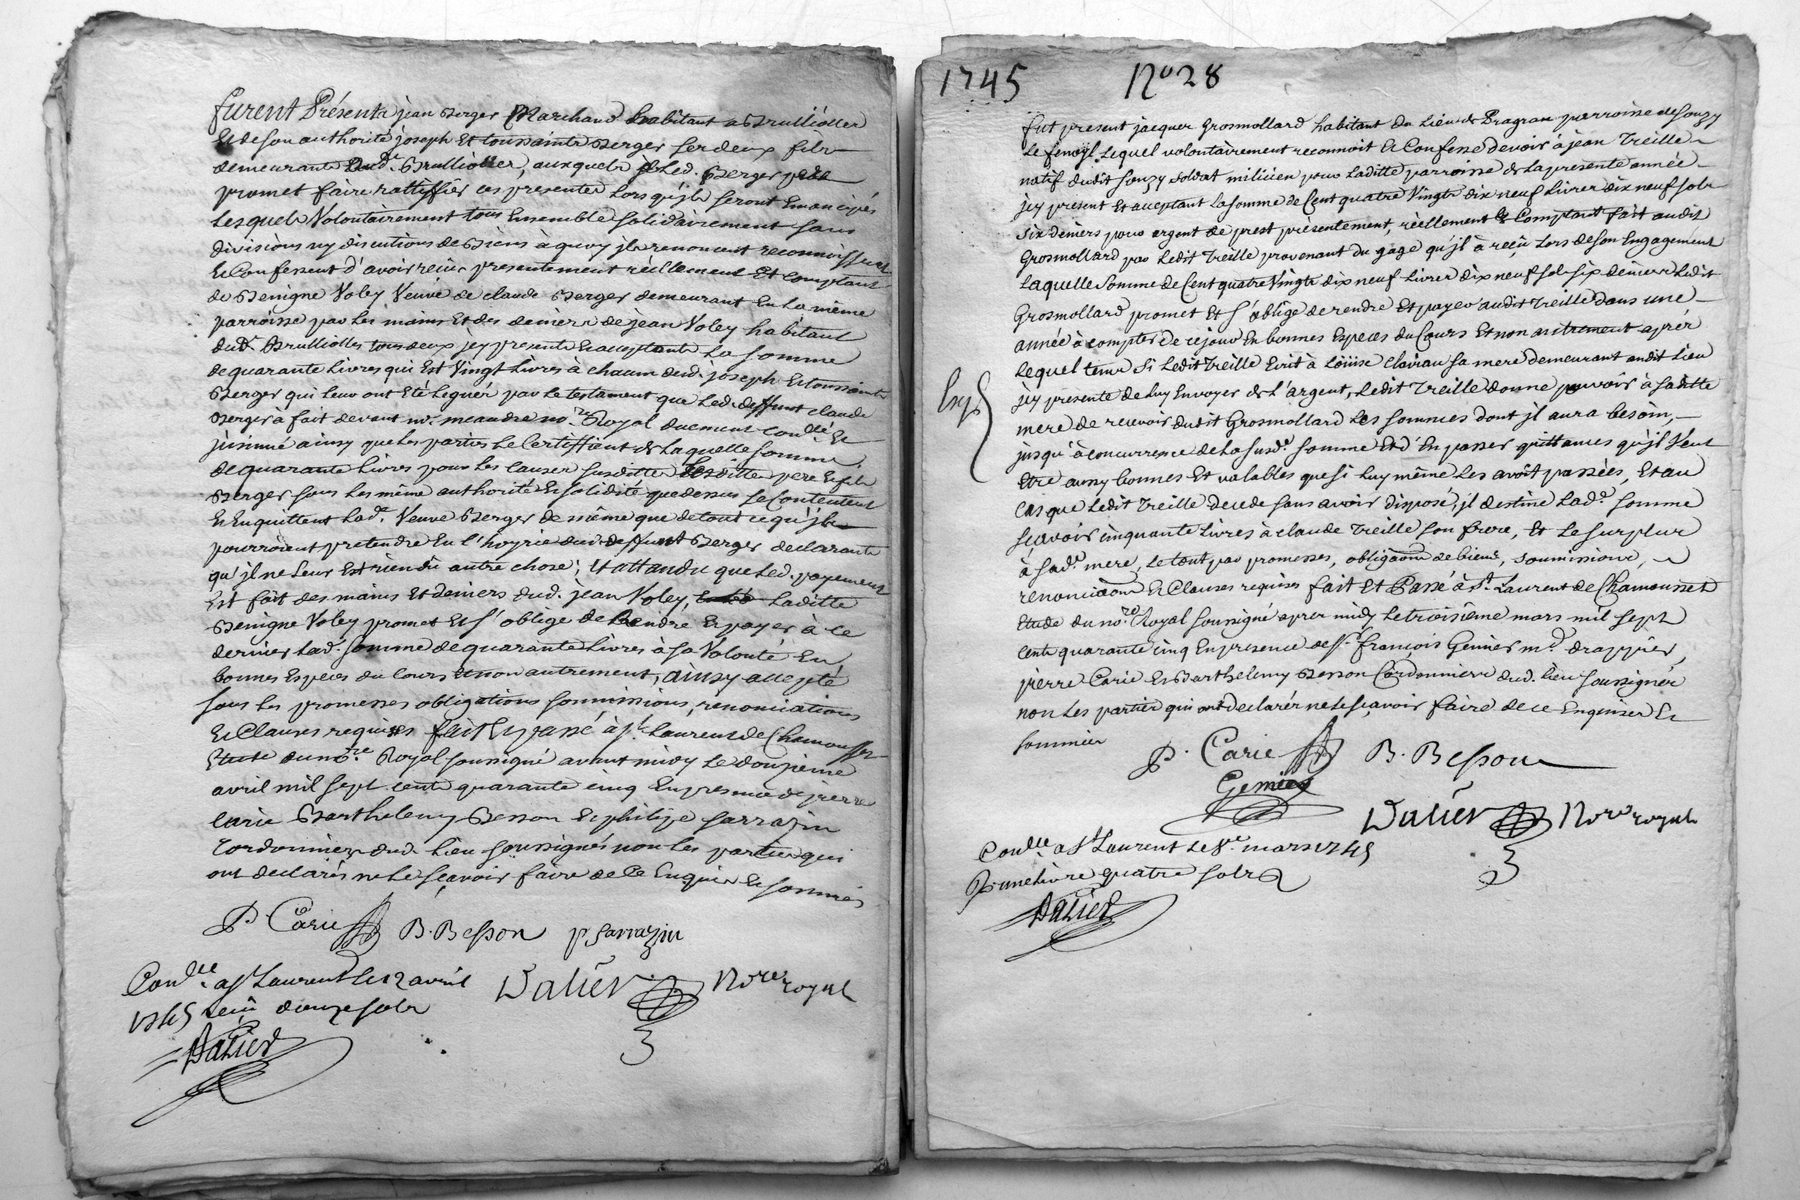 furent Présents jean Berger Marchand habitant a Brulliolles
Et de son authorité joseph Et toussainte Berger ses deux fils
demeurants aud. Brulliolles, auxquels Led. Berger pere
promet faire rattiffier ces presentes Lors qu'jls seront Emancipés
Lesquels Volontairement tous Ensemble solidairement sans
divisions ny discutions de Biens à quoy jls renoncent reconnoissent
Et Confessent d'avoir reçu presentement réellement Et comptant
de Benigne Voley Veuve de claude Berger demeurant En La même
parroisse par Les mains Et des deniers de jean Voley habitant
dud. Brulliolles tous deux jcy presents Et acceptants La somme
de quarante Livres qui Est Vingt Livres à chacun dud. joseph Et toussainte
Berger qui Leur ont Eté Legués par Le testament que Led. deffunt claude
Berger a fait devant me. meandre nore. Royal duement conllé. Et
jnsinué ainsy que Les parties Le Certiffient de Laquelle somme
de quarante Livres pour Les causes susdittes Lesdittes pere Et fils
Berger sous Les même authorité Et solidité que dessus se Contentent
Et En quittent Lade. Veuve Berger de même que de tout ce qu'jls
pourroient pretendre En L'hoyrie dud. deffunt Berger declarants
qu'jl ne Leur Est rien dû autre chose; Et attandu que Led. payement
Est fait des mains Et deniers dud. jean Voley, Laditte
Benigne Voley promet Et s'oblige de Rendre Et payer à ce
dernier Lad. somme de quarante Livres à sa Volonté En
bonnes Especes du Cours Et non autrement, ainsy accepté
sous Les promesses obligations soumissions, renonciations
Et Clauses requises fait Et passé à St. Laurent de Chamousset
Etude du nore. Royal soussigné avant midy Le douzieme
avril mil sept cents quarante cinq En presence de pierre
Carie Barthelemy Besson Et philipe sarrazin
Cordonniers dud. Lieu soussignés non Les parties qui
ont declarés ne Le sçavoir faire de ce Enquis Et sommés
P. Carie B. Besson p sarrazin
Conllé a St Laurent Le 12 avril
1745 reçu douze sols
Dalier Nore royal
Dalier
1745 No 28
fut present jacques Grosmollard habitant du Lieu de Pragran parroisse de souzy
Le fenoyl Lequel volontairement reconnoit Et Confesse devoir à jean Treille
natif dudit souzy soldat milicien pour Laditte parroisse de La presente année
jcy present Et acceptant La somme de Cent quatre Vingts dix neuf Livres dix neuf sols
six deniers pour argent de prest presentement, réellement Et Comptant fait audit
Grosmollard par Ledit Treille provenant du gage qu'jl à reçu Lors de son Engagement
Laquelle somme de Cent quatre Vingts dix neuf Livres dix neuf sols six deniers Ledit
Grosmollard promet Et s'oblige de rendre Et payer audit Treille dans une
année à compter de ce jour En bonnes Especes du Cours Et non autrement aprés
Lequel tems si Ledit Treille Ecrit à Loüise claviau sa mere demeurant audit Lieu
jcy presente de Luy Envoyer de L'argent, Ledit Treille donne pouvoir à saditte
mere de recevoir dudit Grosmollard Les sommes dont jl aura besoin,
jusqu'à concurrence de La susde. somme Et d'En passer quittances qu'jl Veut
Etre aussy bonnes Et valables que si Luy même Les avoit passées, Et au
Cas que Ledit Treille decede sans avoir disposé, jl destine Lade. somme
sçavoir cinquante Livres à claude Treille son frere, Et Le surplus
à sade. mere, Le tout par promesses, obligaons de biens, soumissions,
renonciaons Et Clauses requises fait Et Passé à St. Laurent de Chamousset
Etude du nore. Royal soussigné apres midy Le troisième mars mil sept
Cents quarante cinq En presence de Sr. françois Genies md. drappier,
pierre Carie Et Barthelemy Besson Cordonniers dud. Lieu soussignés
non Les parties qui ont declarés ne Le sçavoir faire de ce Enquises Et
sommées
P. Carie B. Besson
Genies
Dalier Nore royal
Conllé a St Laurent Le 8e. mars 1745
R une Livre quatre sols
Dalier